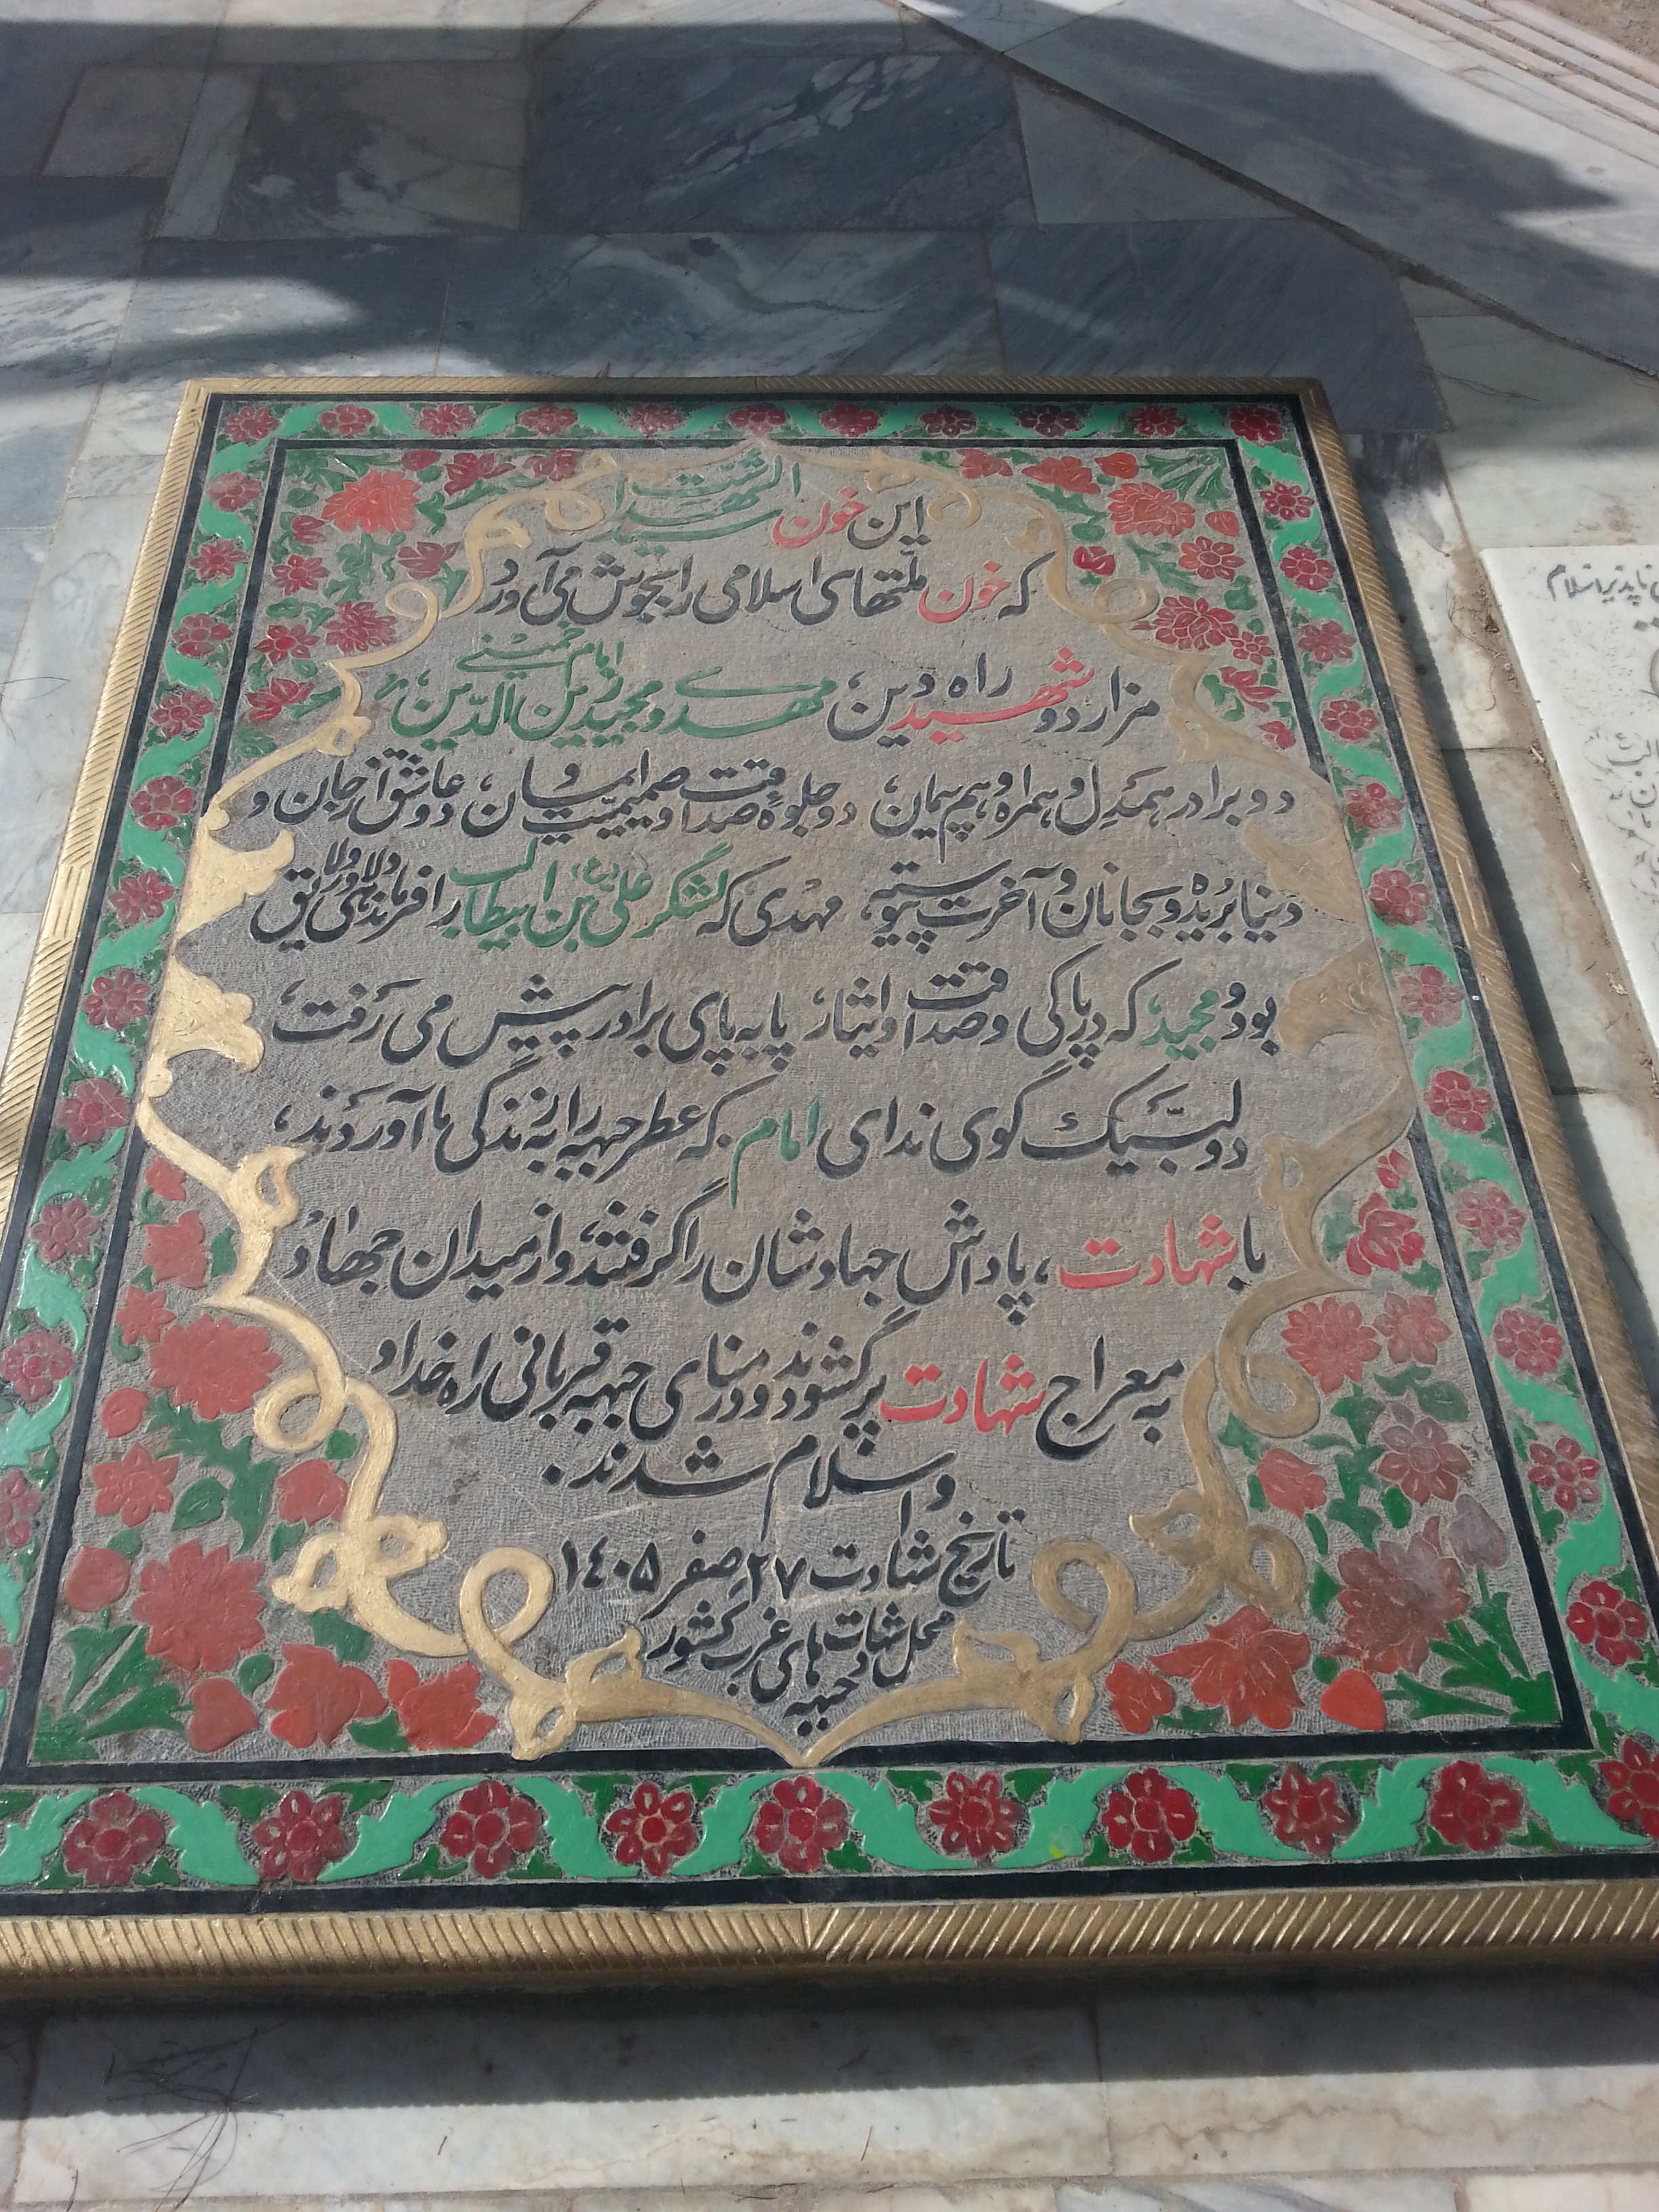 این خون سیدالشهداست
که خون ملتهای اسلامی را بجوش می‌آورد
امام خمینی
مزار دو شهید راه دین، مهدی و مجید زین‌الدّین،
دو برادر همدل و همراه و هم پیمان، دو جلوه صداقت و صمیمیت و ایمان، دو عاشق از جان و
دنیا بریده و بجانان و آخرت پیوسته، مهدی که لشگر علی بن ابیطالب (ع) را فرماندهی لایق و والا بود
و مجید، که در پاکی و صداقت و ایثار، پا به پای برادر پیش می رفت،
دو لبّیک گوی ندای امام که عطر جبهه را به زندگی ما آوردند،
با شهادت، پاداش جهادشان را گرفتند و از میدان جهاد
به معراج شهادت پر گشودند و در منای جبهه قربانی راه خدا
و اسلام شدند.
تاریخ شهادت ۲۷ صفر ۱۴۰۵
محل شهادت جبهه های غرب کشور
ناپذیر اسلام